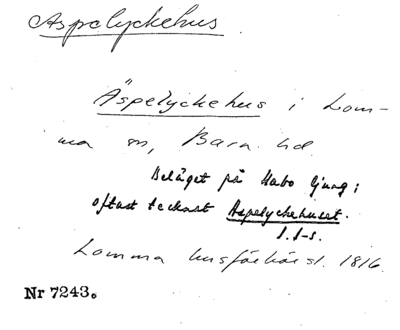 Äspelyckehus
Äspelyckehus i Lom-
ma sn, Bara hd.
Beläget på Habo ljung;
oftast tecknat Äspelyckehuset.
I. I-s.
Lomma husförhörsl. 1816.
Nr 7243.